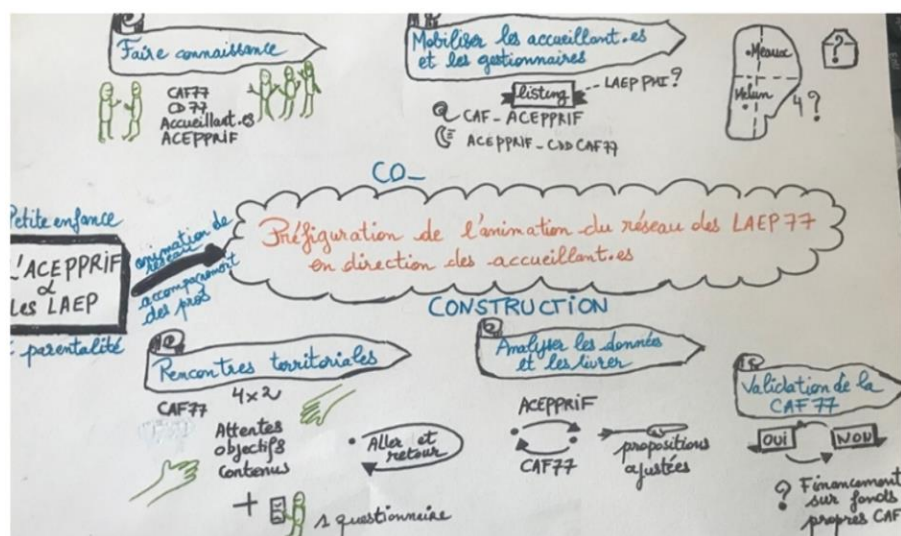 Faire connaissance
CAF77
CD 77
Accueillant.es
ACEPPRIF
Mobiliser les accueillant.es
et les gestionnaires
listing
LAEP PMI ?
CAF_ ACEPPRIF
ACEPPRIF_CDD CAF77
Meaux
Melun
4 ?
?
CO_
Petite enfance
L'ACEPPRIF
&
Les LAEP
parentalité
animation de
réseau
accompagnement
des prof
Préfiguration de l'animation du réseau des LAEP 77
en direction des accueillant.es
CONSTRUCTION
Rencontres territoriales
CAF77
4x2
Attentes
objectifs
contenus
Aller et
retour
+
1 questionnaire
Analyser les données
et les livrer
ACEPPRIF
CAF77
propositions
ajustées
Validation de la
CAF 77
OUI
NON
? Financement
sur fonds
propres CAF